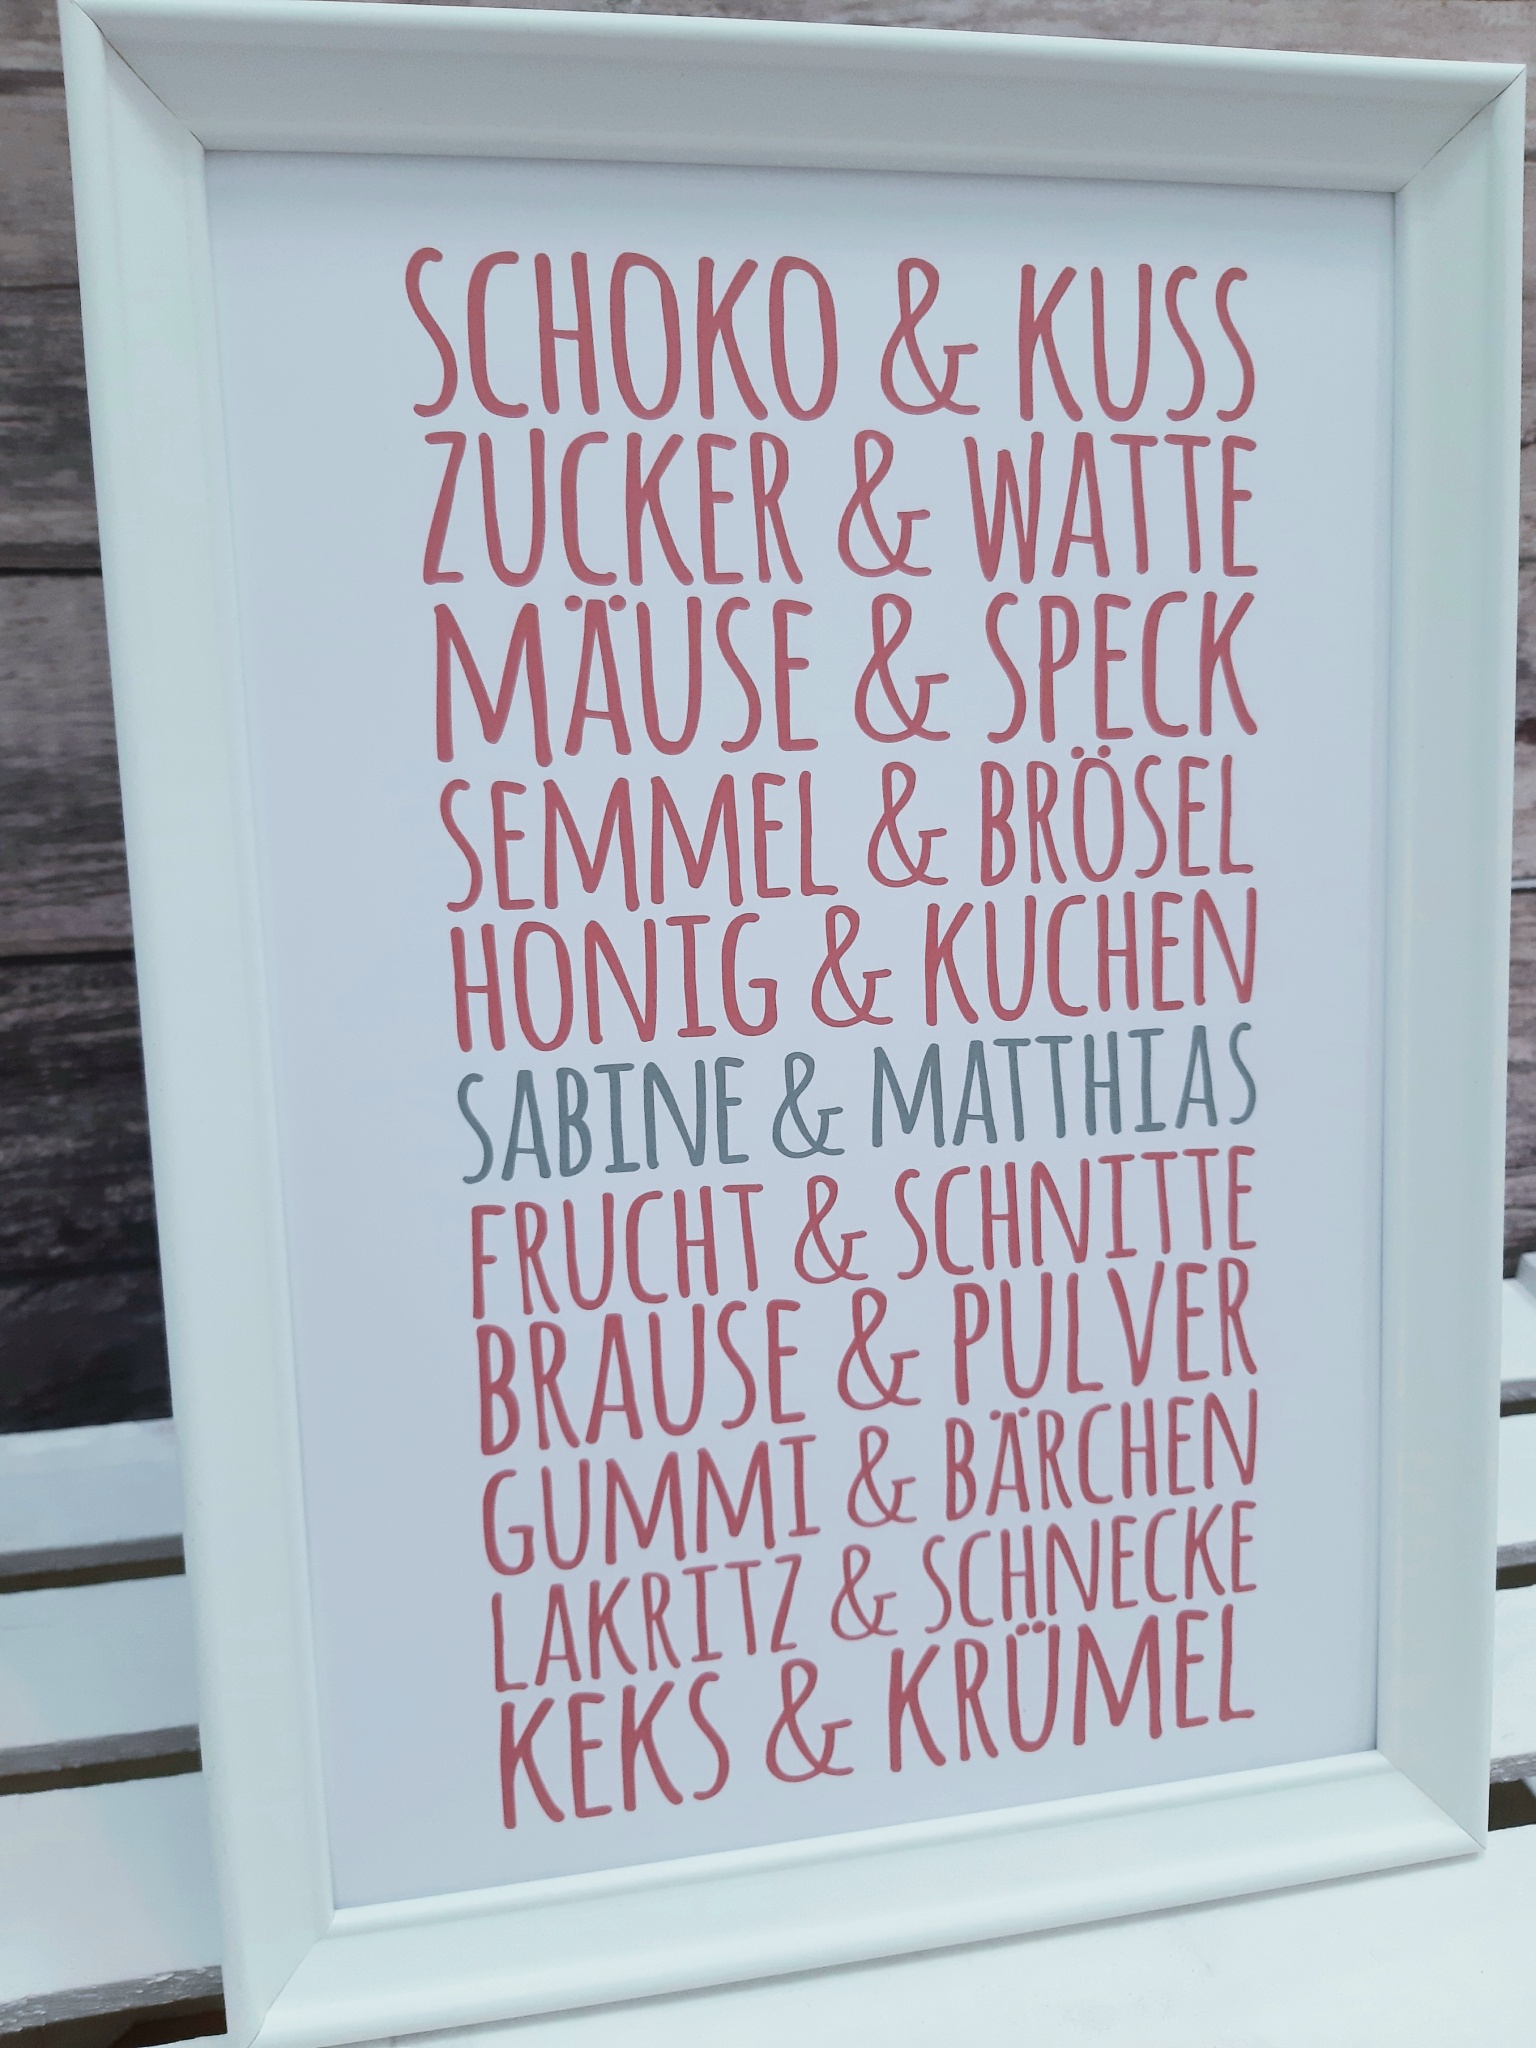 SCHOKO & KUSS
ZUCKER & WATTE
MÄUSE & SPECK
SEMMEL & BRÖSEL
HONIG & KUCHEN
SABINE & MATTHIAS
FRUCHT & SCHNITTE
BRAUSE & PULVER
GUMMI & BÄRCHEN
LAKRITZ & SCHNECKE
KEKS & KRÜMEL